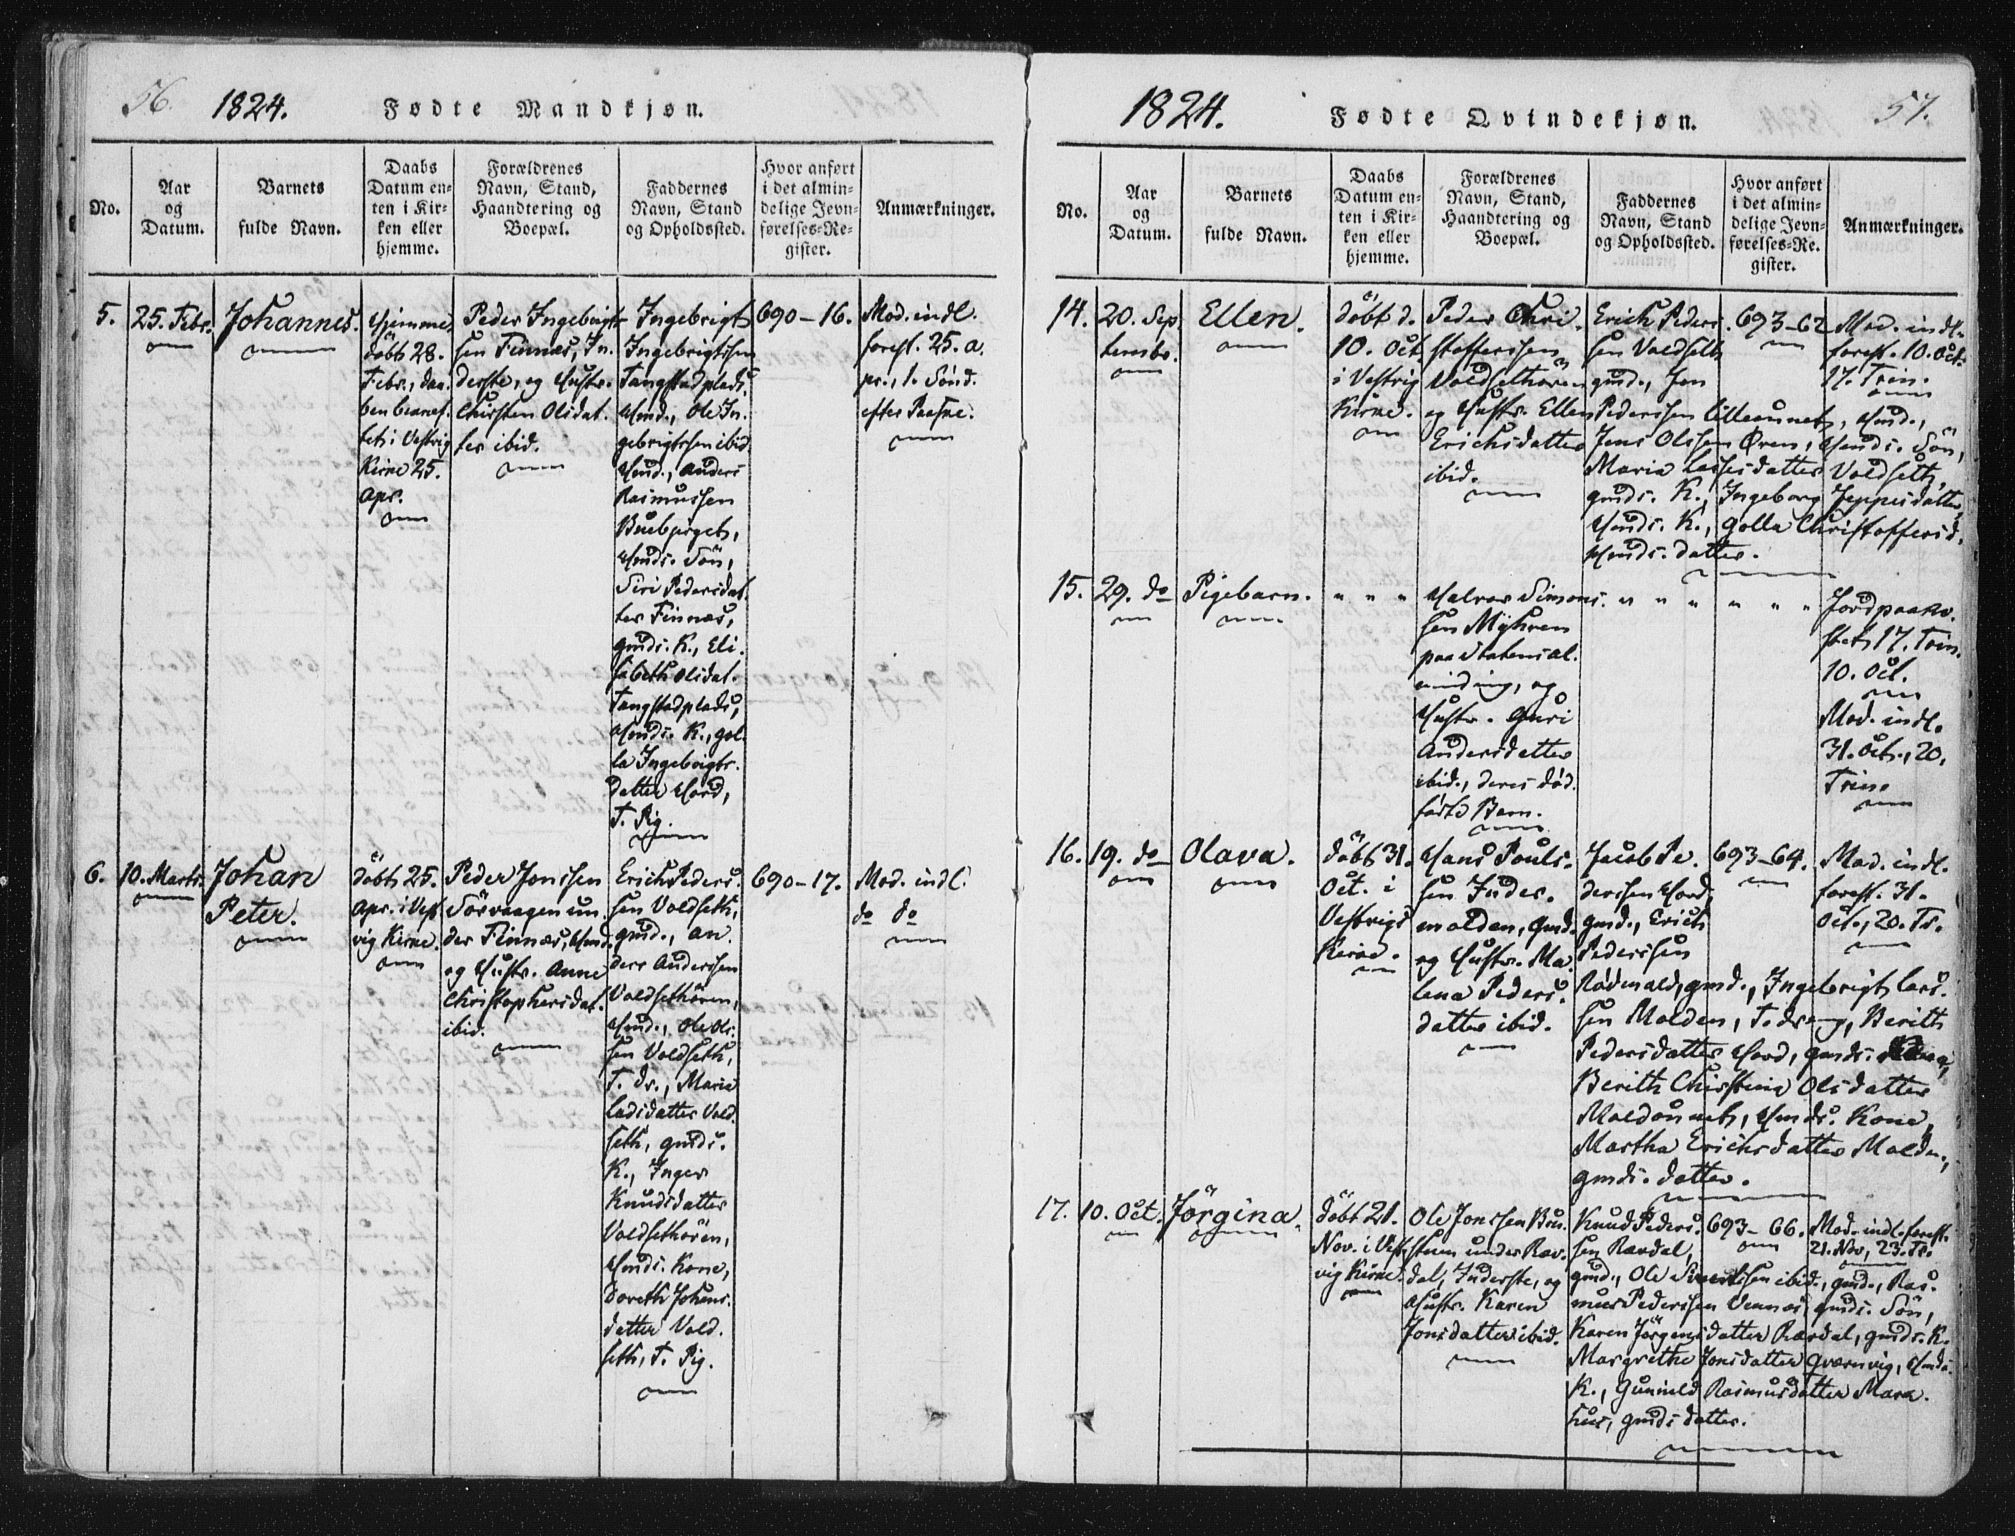 56.
1824.
Fødte Mandkjøn.
No.
Aar
og
Datum.
Barnets
fulde Navn.
Daabs
Datum en-
ten i Kir-
ken eller
hjemme.
Forældrenes
Navn, Stand,
Haandtering og
Boepæl.
Faddernes
Navn, Stand
og Opholdssted.
Hvor anført
i det almin-
delige Jevn-
førelses-Re-
gister.
Anmærkninger.
5.
25. Febr.
Johannes.
Hjemme
döbt 28.
Febr., daa-
ben
tet i Vestvig
Kirke 25.
Apr.
Peder Ingebrigt-
sen Finnæs, In-
derste, og Hustr.
Chirsten Olsdat-
ter ibid.
Ingebrigt
Ingebrigtssen
Tangstadplads,
Hmd., Ole In-
gebrigtssen ibid.
Hmd., Anders
Rasmussen
Buebjerget,
Hmds. Sön,
Siri Pedersdat-
ter Finnæs,
gmds. K., Eli-
sabeth Olsdat.
Tangstadplads,
Hmds. K., Gol-
la Ingebrigts-
datter Hord,
T. Pig.
690-16.
Mod. indl.
forest. 25. A-
pr., 1. Sönd.
efter Paaske.
6.
10. Marts.
Johan
Peter.
döbt 25.
Apr. i Vest-
vig Kirke.
Peder Jonssen
Sörvaagen un-
der Finnæs, Hmd.
og Hustr. Anne
Christophersdat.
ibid.
Erich Peders-
sen Voldseth,
gmd., An-
ders Anderssen
Voldsethören,
Hmd., Ole Ols-
sen Voldseth,
T. dr., Maria
Ladsdatter Vold-
seth, gmds.
K., Inger
Knudsdatter
Voldsethören,
Hmds. Kone,
Doreth Johans-
datter Vold-
seth, T. Pig.
690-17.
Mod. indl.
do do
1824.
Fødte Qvindekjøn.
57.
No.
Aar
og
Datum.
Barnets
fulde Navn.
Daabs
Datum en-
ten i Kir-
ken eller
hjemme.
Forældrenes
Navn, Stand,
Haandtering og
Boepæl.
Faddernes
Navn, Stand
og Opholdssted.
Hvor anført
i det almin-
delige Jevn-
førelses-Re-
gister.
Anmærkninger.
14.
20. Sep-
tembr.
Ellen.
döbt d.
10. Oct.
i Vestvig
Kirke.
Peder Chri-
stofferssen
Voldsethören
og Hustr. Ellen
Erichsdatter
ibid.
Erich Peders-
sen Voldseth
gmd., Jon
Pederssen Lilleaunet, Hmd.,
Jens Olssen Øren, Hmds. Sön,
Maria Lassesdatter Voldseth,
gmds. K., Ingeborg Jeppesdatter,
Hmds. K., Golla Christoffersd.
Hmds. datter.
693-62
Mod. indl.
forest. 10. Oct.
17. Trin.
15.
29. do
Pigebarn.
" " "
Halvor Simons-
sen Myhren
paa Statens Al-
minding, og
Hustr. Guri
Andersdatter
ibid., deres död-
födte Barn.
" " " " " "
Jordpaaka-
stet 17. Trin.
10. Oct.
Mod. indl.
31. Oct., 20.
Trin.
16.
19. do
Olava.
döbt 31.
Oct. i
Vestvigs
Kirke.
Hans Pouls-
sen Inder-
molden, gmd.
og Hustr. Ma-
lena Peders-
datter ibid.
Jacob Pe-
derssen Hord,
gmd., Erich
Pederssen
Rödmald, gmd., Ingebrigt Lars-
sen Molden, T. dreng, Berith
Pedersdatter Hord, gmds.
Berith Chirstina Olsdatter
Moldaunet, Hmds. Kone,
Martha Erichsdatter Molden,
gmds. datter.
693-64.
Mod. indl.
forest. 31.
Oct., 20. Tr.
17.
10. Oct.
Jörgina.
döbt 21.
Nov. i Vest-
vig Kirke.
Ole Jonssen Bru-
stuen under Rav-
dal, Inderste, og
Hustr. Karen
Jonsdatter ibid.
Knud Peders-
sen Rævdal,
gmd., Ole Knudssen ibid., gmd., Ras-
mus Pederssen Vennæs, gmds. Sön,
Karen Jörgensdatter Rævdal, gmds. K.
Margrethe Jonsdatter Qværnvig, Hmds.
K., Gunnild Rasmusdatter Mara-
hus, gmds datter.
693-66.
Mod. indl. forest.
21. Nov., 23. Tr.